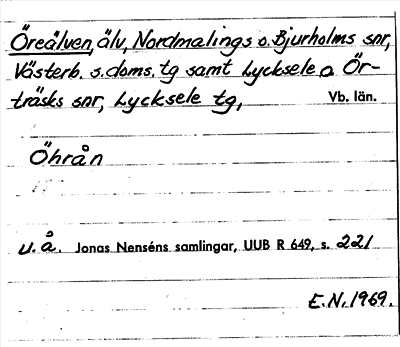 Öreälven, älv, Nordmalings o. Bjurholms snr,
Västerb. s. doms. tg samt Lycksele o Ör-
träsks snr, Lycksele tg,
Vb. län.
Öhrån
u.å. Jonas Nenséns samlingar, UUB R 649, s. 221
E.N. 1969.